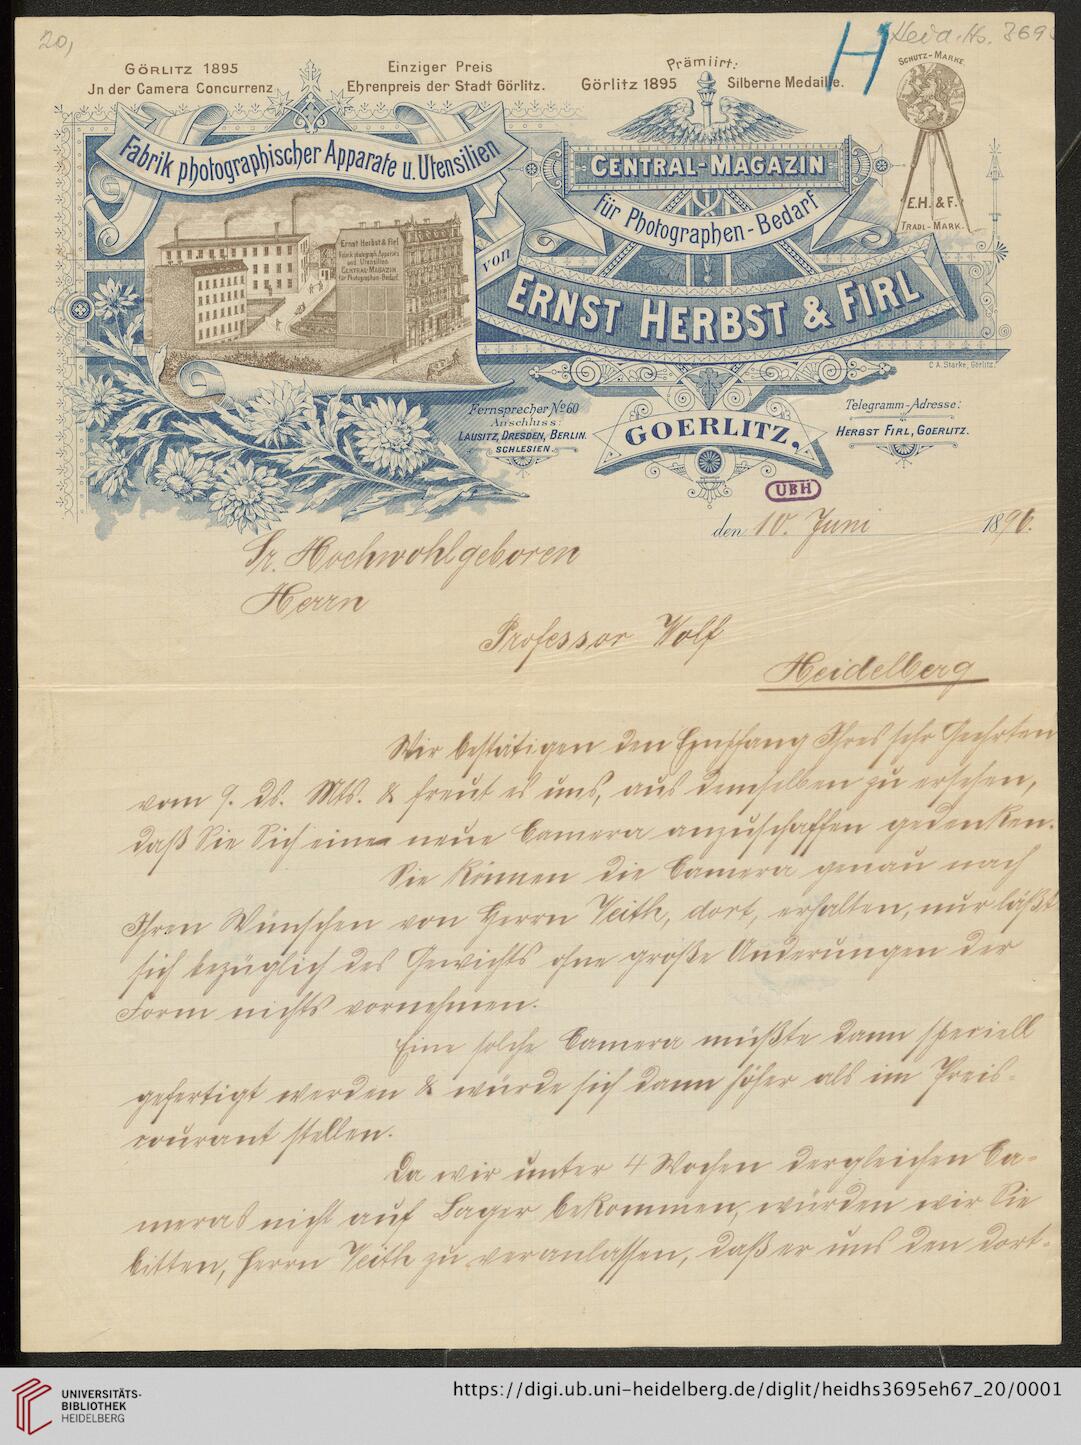 20,
Heid. Hs. 369
H
GÖRLITZ 1895
Jn der Camera Concurrenz
Einziger Preis
Ehrenpreis der Stadt Görlitz.
Prämiirt:
Görlitz 1895 Silberne Medaille.
SCHUTZ-MARKE.
E.H. & F.
TRADE-MARK.
Fabrik photographischer Apparate u. Utensilien
CENTRAL-MAGAZIN
für Photographen-Bedarf
von
ERNST HERBST & FIRL
Ernst Herbst & Firl
Fabrik photograph. Apparate
und Utensilien
CENTRAL-MAGAZIN
für Photographen-Bedarf.
C.A. Starke, Görlitz.
Fernsprecher No 60
Anschluss:
LAUSITZ, DRESDEN, BERLIN.
SCHLESIEN
GOERLITZ,
Telegramm-Adresse:
HERBST FIRL, GOERLITZ.
UBH
den 10. Juni 1896.
Sr. Hochwohlgeboren
Herrn
Professor Wolf
Heidelberg
Wir bestätigen den Empfang Ihres sehr Geehrten
vom 9. ds. Mts. & freut es uns, aus demselben zu ersehen,
daß Sie Sich eine neue Camera anzuschaffen gedenken.
Sie können die Camera genau nach
Ihren Wünschen von Herrn Veith, dort, erhalten, nur läßt
sich bezüglich des Gewichts ohne große Änderungen der
Form nichts vornehmen.
Eine solche Camera müßte dann speciell
gefertigt werden & würde sich dann höher als im Preis-
courant stellen.
Da wir unter 4 Wochen dergleichen Ca-
meras nicht auf Lager bekommen, würden wir Sie
bitten, Herrn Veith zu veranlassen, daß er uns den dort-
UNIVERSITÄTS-
BIBLIOTHEK
HEIDELBERG
https://digi.ub.uni-heidelberg.de/diglit/heidhs3695eh67_20/0001